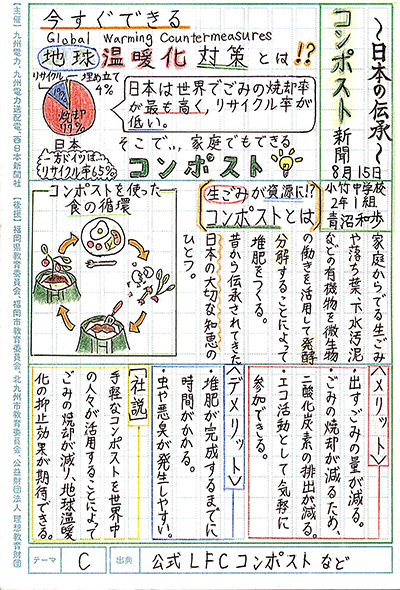 〜日本の伝承〜
コンポスト
新聞
8月15日
小竹中学校
2年1組
青沼和歩
今すぐできる
Global Warming Countermeasures
地球温暖化対策とは!?
リサイクル
19%
埋め立て
4%
焼却
77%
日本
一方ドイツは…
リサイクル率65%
日本は世界でごみの焼却率
が最も高く、リサイクル率が
低い。
そこで…、家庭でもできる
コンポスト
生ごみが資源に!?
コンポストとは
家庭からでる生ごみ
や落ち葉、下水汚泥
などの有機物を微生物
の働きを活用して発酵
分解することによって
堆肥をつくる。
昔から伝承されてきた
日本の大切な知恵の
ひとつ。
コンポストを使った
食の循環
〈メリット〉
・出すごみの量が減る。
・ごみの焼却が減るため、
二酸化炭素の排出が減る。
・エコ活動として気軽に
参加できる。
〈デメリット〉
・堆肥が完成するまでに
時間がかかる。
・虫や悪臭が発生しやすい。
社説
手軽なコンポストを世界中
の人々が活用することによって
ごみの焼却が減り地球温暖
化の抑止効果が期待できる。
テーマ
C
出典
公式LFCコンポストなど
【主催】九州電力、九州電力送配電、西日本新聞社 【後援】福岡県教育委員会、福岡市教育委員会、北九州市教育委員会、公益財団法人 理想教育財団